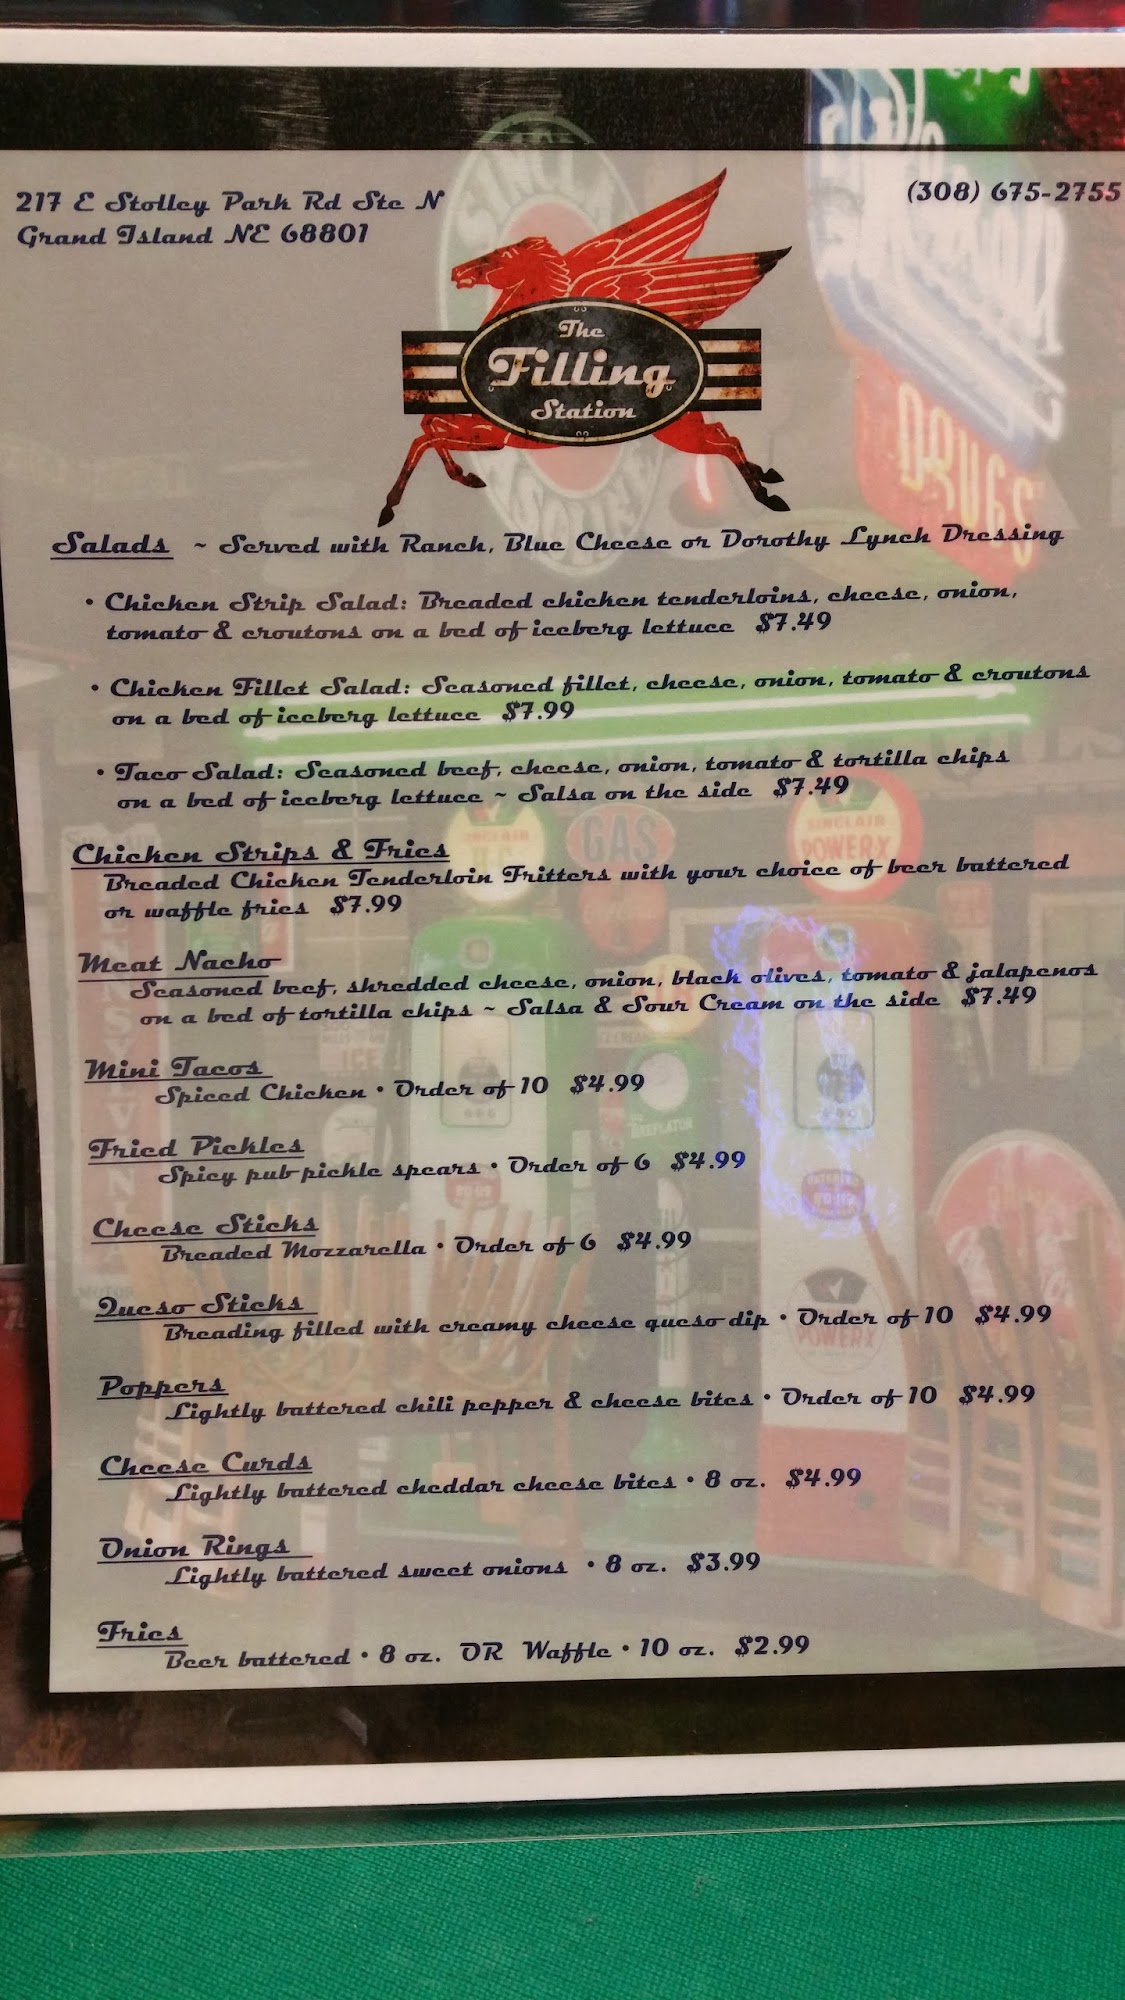 217 E Stolley Park Rd Ste N
Grand Island NE 68801
(308) 675-2755
The
Filling
Station
Salads ~ Served with Ranch, Blue Cheese or Dorothy Lynch Dressing
• Chicken Strip Salad: Breaded chicken tenderloins, cheese, onion,
tomato & croutons on a bed of iceberg lettuce $7.49
• Chicken Fillet Salad: Seasoned fillet, cheese, onion, tomato & croutons
on a bed of iceberg lettuce $7.99
• Taco Salad: Seasoned beef, cheese, onion, tomato & tortilla chips
on a bed of iceberg lettuce ~ Salsa on the side $7.49
Chicken Strips & Fries
Breaded Chicken Tenderloin Fritters with your choice of beer battered
or waffle fries $7.99
Meat Nacho
Seasoned beef, shredded cheese, onion, black olives, tomato & jalapenos
on a bed of tortilla chips ~ Salsa & Sour Cream on the side $7.49
Mini Tacos
Spiced Chicken • Order of 10 $4.99
Fried Pickles
Spicy pub pickle spears • Order of 6 $4.99
Cheese Sticks
Breaded Mozzarella • Order of 6 $4.99
Queso Sticks
Breading filled with creamy cheese queso dip • Order of 10 $4.99
Poppers
Lightly battered chili pepper & cheese bites • Order of 10 $4.99
Cheese Curds
Lightly battered cheddar cheese bites • 8 oz. $4.99
Onion Rings
Lightly battered sweet onions • 8 oz. $3.99
Fries
Beer battered • 8 oz. OR Waffle • 10 oz. $2.99
DRUGS
SINCLAIR
GAS
SINCLAIR
POWER-X
ICE
POWER-X